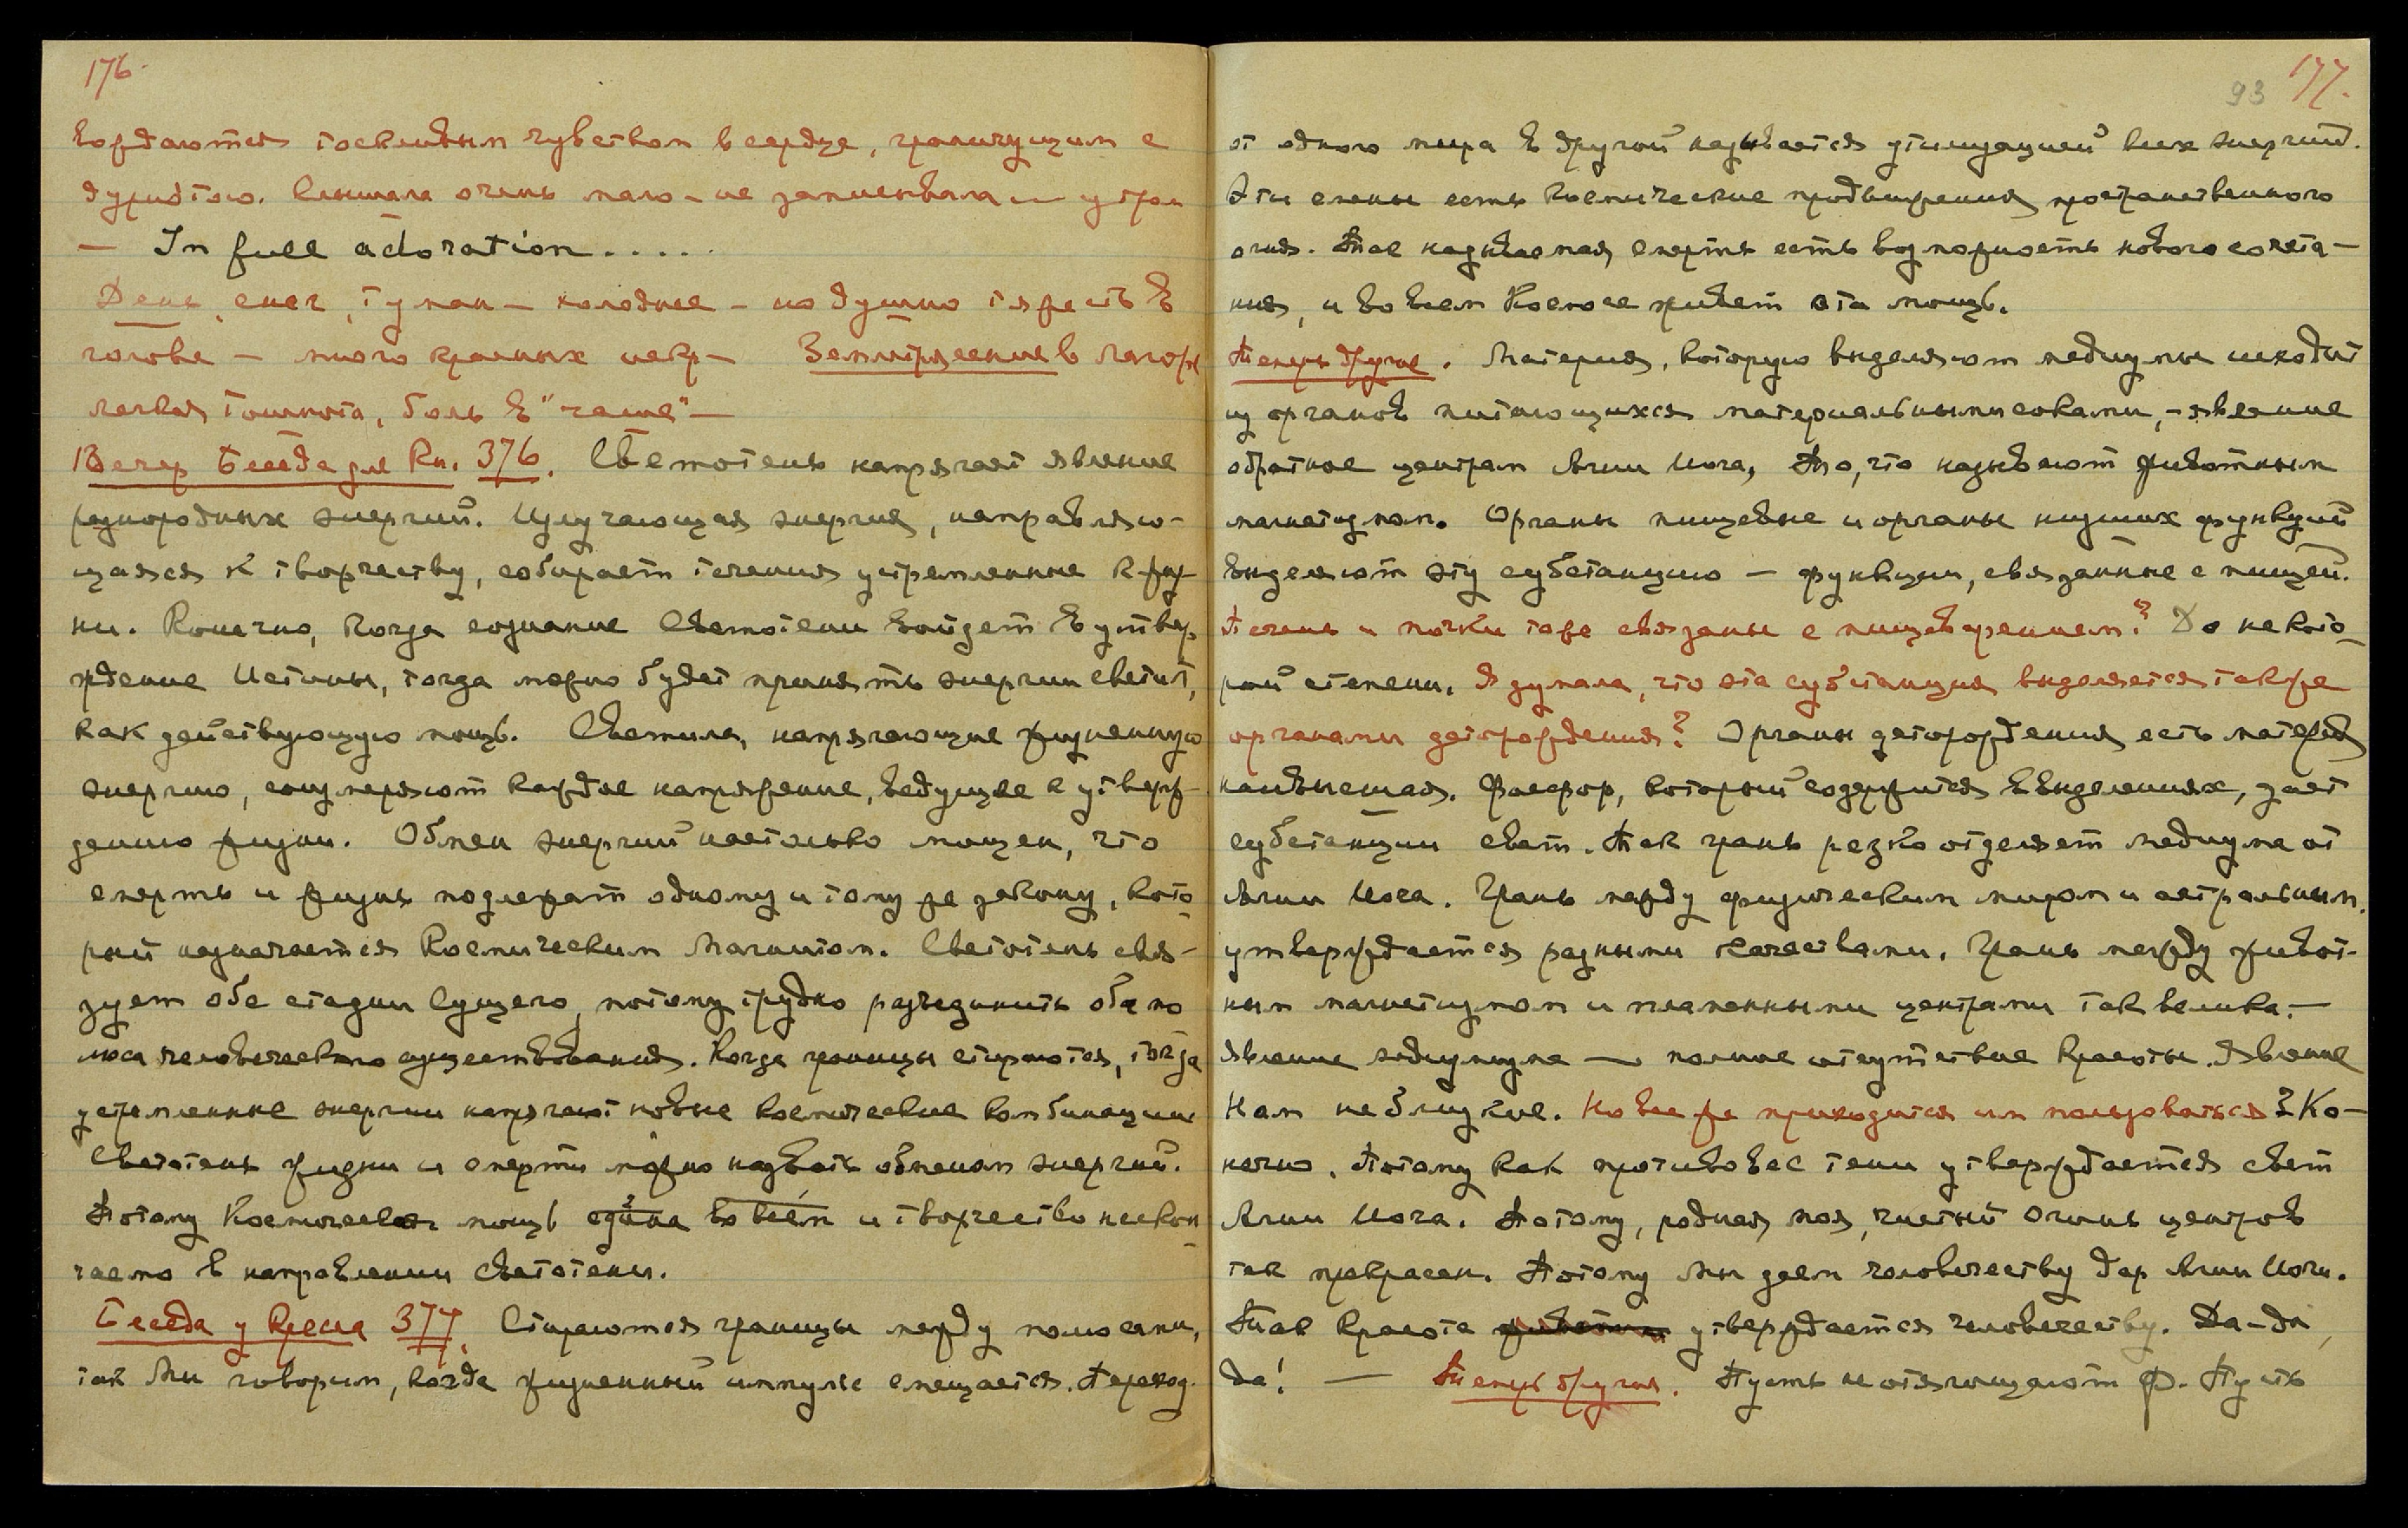 176.
вождаются тоскливым чувством в сердце, граничущим с
дурнотою. Слышала очень мало – не записывала – утром
— In full adoration.....
День, снег, туман – холоднее – но душно тяжесть в
голове – много красных искр – Землетрясение в Лагоре
легкая тошнота, боль в "чаше" –
Вечер Беседа для Кн. 376. Светотень напрягает явление
разнородных энергий. Излучающая энергия, направляю-
щаяся к творчеству, собирает течения устремленные к жиз-
ни. Конечно, когда сознание Светотени войдет в утвер-
ждение Истины, тогда можно будет принять энергии светил,
как действующую мощь. Светила, напрягающие жизненную
энергию, соизмеряют каждое напряжение, ведущее к утверж-
дению жизни. Обмен энергий настолько мощен, что
смерть и жизнь подлежат одному и тому же закону, кото-
рый назначается Космическим Магнитом. Светотень свя-
зует обе стадии Сущего, потому трудно разъединить оба по-
люса человеческого существования. Когда границы стираются, тогда
устремленные энергии напрягают новые космические комбинации
Светотень жизни и смерти можно назвать обменом энергий.
Потому Космическая мощь едина во всем и творчество нескон-
чаемо в направлении светотени.
Беседа у Кресла 377. Стираются границы между полюсами,
так Мы говорим, когда жизненный импульс смещается. Переход
93 177.
от одного мира в другой называется утилизацией всех энергий.
Эти смены есть космические продвижения пространственного
огня. Так называемая, смерть есть возможность нового сочета-
ния, и во всем Космосе живет эта мощь.
Теперь другое. Материя, которую выделяют медиумы исходит
из органов питающихся материальными соками, – явление
обратное центрам Агни Йога, то, что называют животным
магнетизмом. Органы пищевые и органы низших функций
выделяют эту субстанцию – функции, связанные с пищей.
Печень и почки тоже связаны с пищеварением? До некото-
рой степени. Я думала, что эта субстанция выделяется также
органами деторождения? Органы деторождения есть материя
наивысшая. Фосфор, который содержится в выделениях, дает
субстанции свет. Так грань резко отделяет медиума от
Агни Йога. Грань между физическим миром и астральным.
утверждается разными качествами. Грань между живот-
ным магнетизмом и пламенными центрами так велика. –
Явление медиумизма — полное отсутствие Красоты. Явление
Нам не близкое. Но все же приходится им пользоваться? Ко-
нечно. Потому как противовес тени утверждается свет
Агни Йога. Потому, родная моя, чистый Огонь центров
так прекрасен. Потому Мы даем человечеству дар Агни Йоги.
Так Красота утверждается человечеству. Да-да,
да! — Теперь другое. Пусть не отягощают Ф. Пусть